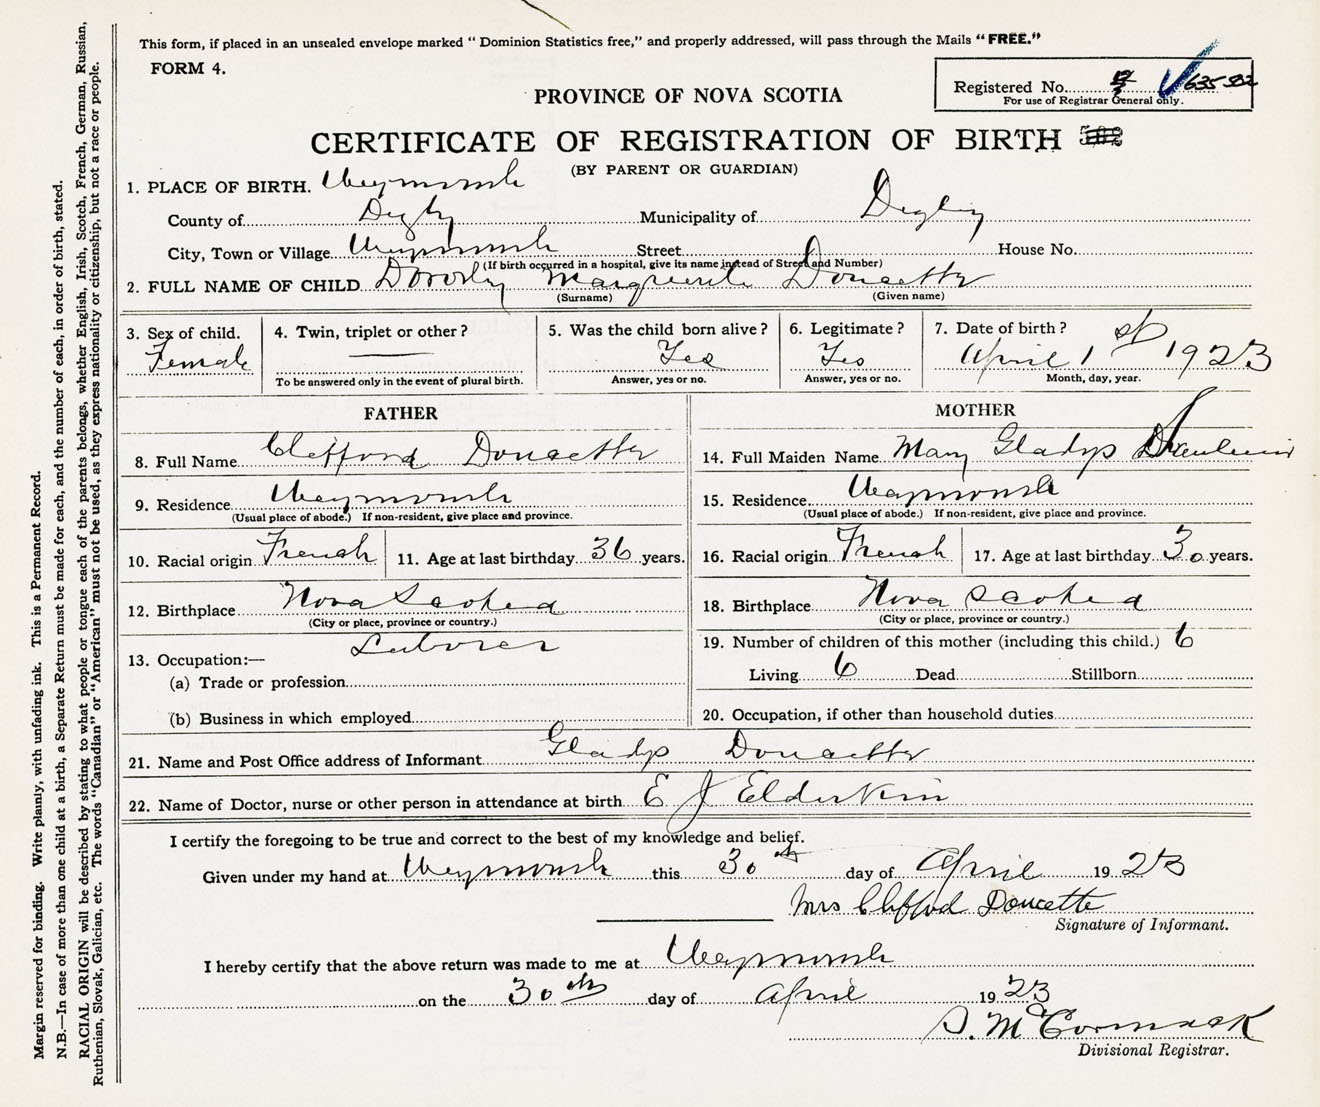 This form, if placed in an unsealed envelope marked "Dominion Statistics free," and properly addressed, will pass through the Mails "FREE."
FORM 4.
Registered No. 635 502
For use of Registrar General only.
PROVINCE OF NOVA SCOTIA
CERTIFICATE OF REGISTRATION OF BIRTH
(BY PARENT OR GUARDIAN)
1. PLACE OF BIRTH. Weymouth
County of Digby Municipality of Digby
City, Town or Village Weymouth Street House No.
(If birth occurred in a hospital, give its name instead of Street and Number)
2. FULL NAME OF CHILD Dorothy Marguerite Doucette
(Surname) (Given name)
3. Sex of child. Female
4. Twin, triplet or other? —
To be answered only in the event of plural birth.
5. Was the child born alive? Yes
Answer, yes or no.
6. Legitimate? Yes
Answer, yes or no.
7. Date of birth? April 1st 1923
Month, day, year.
FATHER
8. Full Name Clifford Doucette
9. Residence Weymouth
(Usual place of abode.) If non-resident, give place and province.
10. Racial origin French 11. Age at last birthday 36 years.
12. Birthplace Nova Scotia
(City or place, province or country.)
13. Occupation:— Laborer
(a) Trade or profession
(b) Business in which employed
MOTHER
14. Full Maiden Name Mary Gladys
15. Residence Weymouth
(Usual place of abode.) If non-resident, give place and province.
16. Racial origin French 17. Age at last birthday 30 years.
18. Birthplace Nova Scotia
(City or place, province or country.)
19. Number of children of this mother (including this child.) 6
Living 6 Dead Stillborn
20. Occupation, if other than household duties
21. Name and Post Office address of Informant Gladys Doucette
22. Name of Doctor, nurse or other person in attendance at birth E J Elderkin
I certify the foregoing to be true and correct to the best of my knowledge and belief.
Given under my hand at Weymouth this 30th day of April 1923
Mrs Clifford Doucette
Signature of Informant.
I hereby certify that the above return was made to me at Weymouth
on the 30th day of April 1923
S. McCormack
Divisional Registrar.
Margin reserved for binding. Write plainly, with unfading ink. This is a Permanent Record.
N.B.—In case of more than one child at a birth, a Separate Return must be made for each, and the number of each, in order of birth, stated.
RACIAL ORIGIN will be described by stating to what people or tongue each of the parents belongs, whether English, Irish, Scotch, French, German, Russian,
Ruthenian, Slovak, Galician, etc. The words "Canadian" or "American" must not be used, as they express nationality or citizenship, but not a race or people.